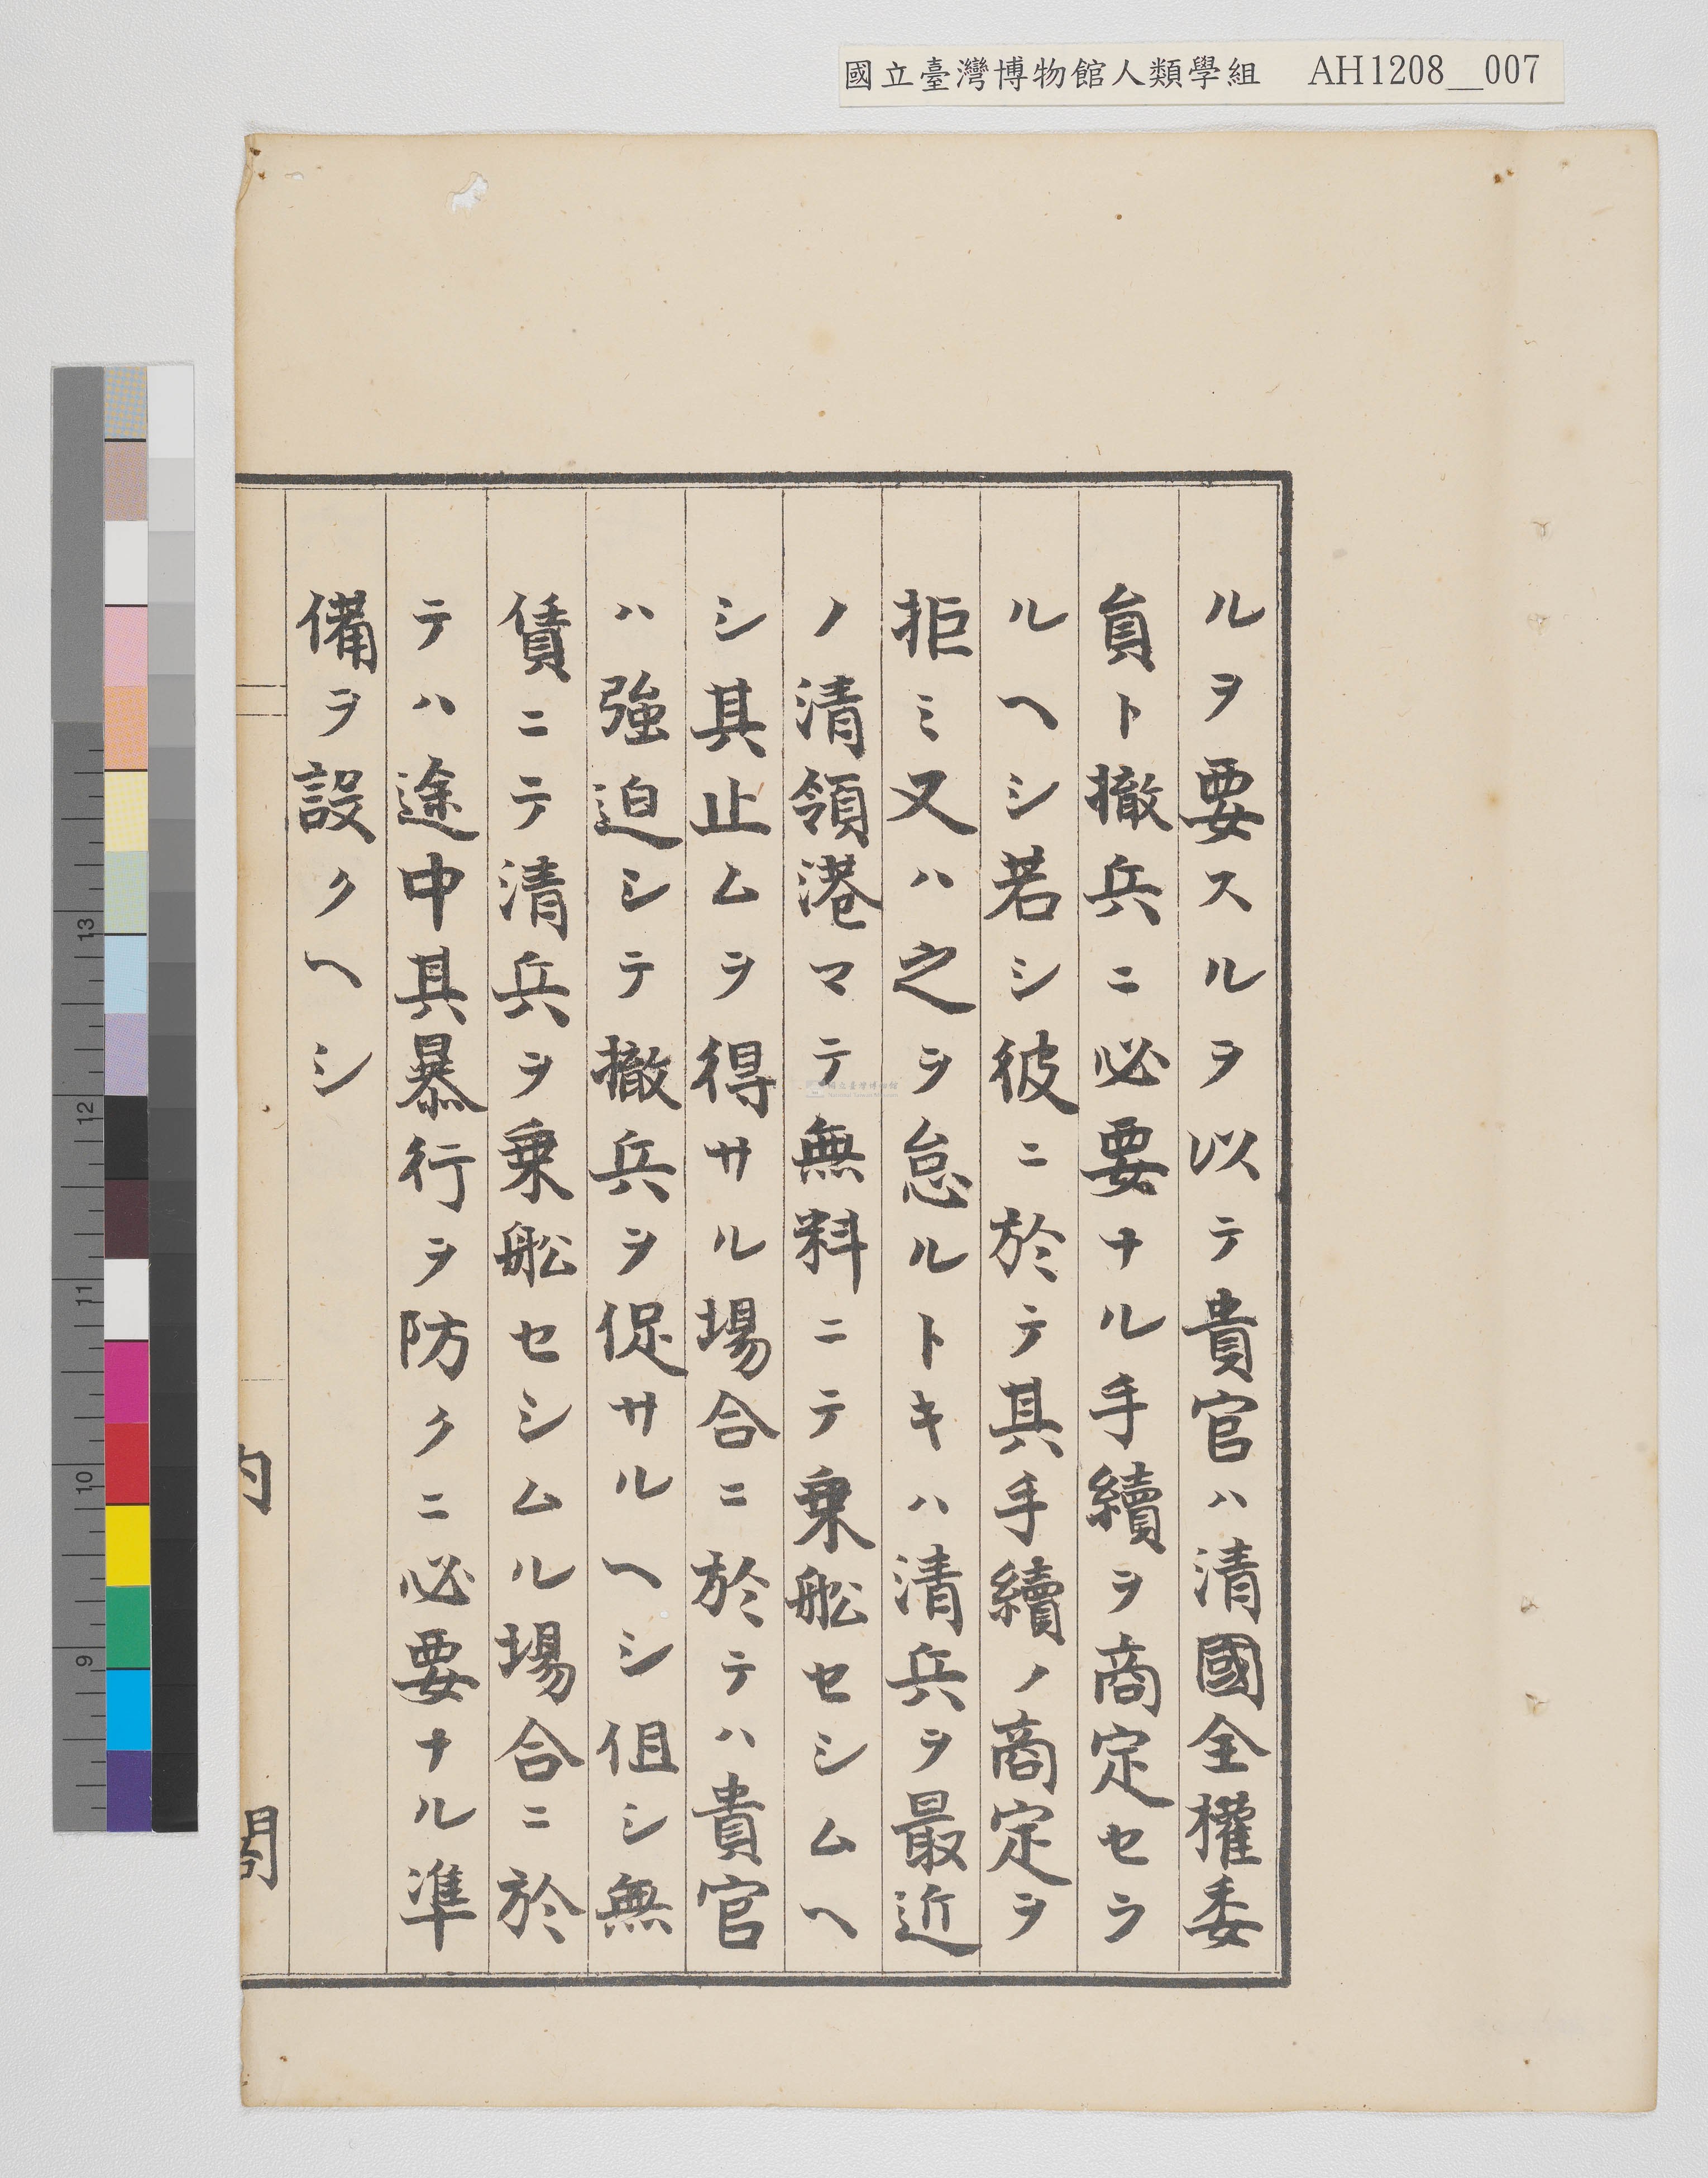 國立臺灣博物館人類學組 AH1208__007
ルヲ要スルヲ以テ貴官ハ清國全權委
員ト撤兵ニ必要ナル手續ヲ商定セラ
ルヘシ若シ彼ニ於テ其手續ノ商定ヲ
拒ミ又ハ之ヲ怠ルトキハ清兵ヲ最近
ノ清領港マテ無料ニテ乗舩セシムヘ
シ其止ムヲ得サル場合ニ於テハ貴官
ハ強迫シテ撤兵ヲ促サルヘシ但シ無
賃ニテ清兵ヲ乗舩セシムル場合ニ於
テハ途中其暴行ヲ防クニ必要ナル準
備ヲ設クヘシ
内閣
13
12
11
10
9